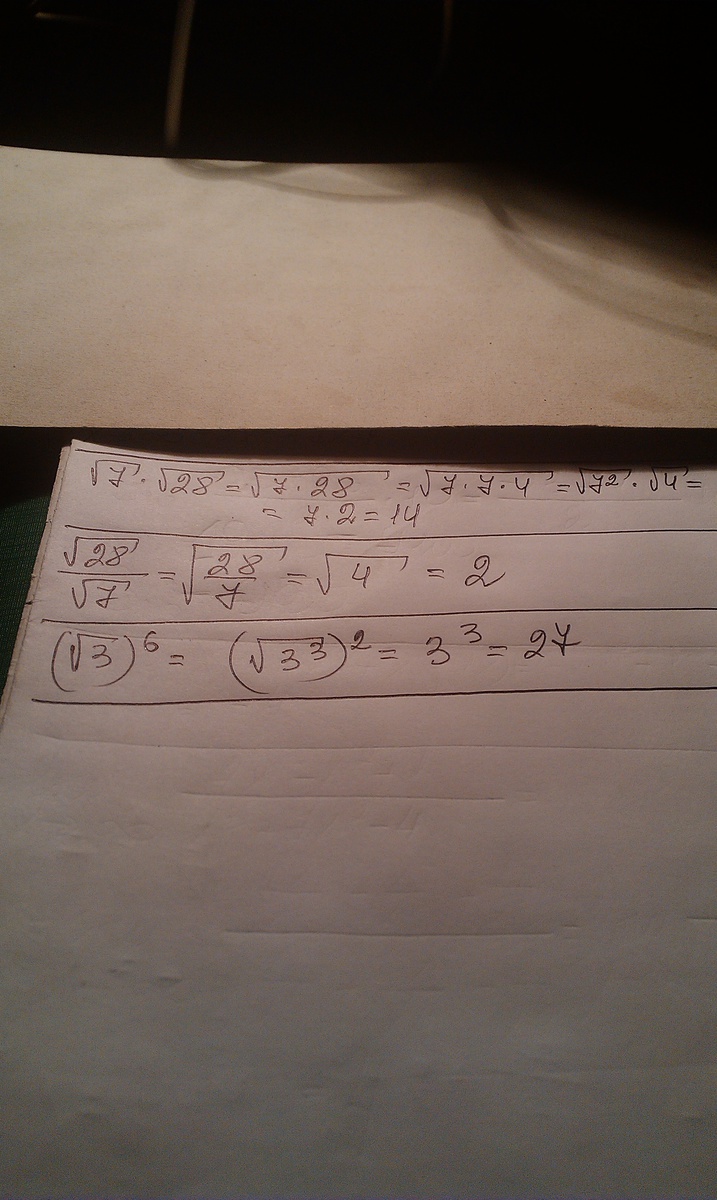 √7 · √28 = √(7 · 28) = √(7 · 7 · 4) = √7² · √4 =
= 7 · 2 = 14
√28/√7 = √(28/7) = √4 = 2
(√3)⁶ = (√3³)² = 3³ = 27